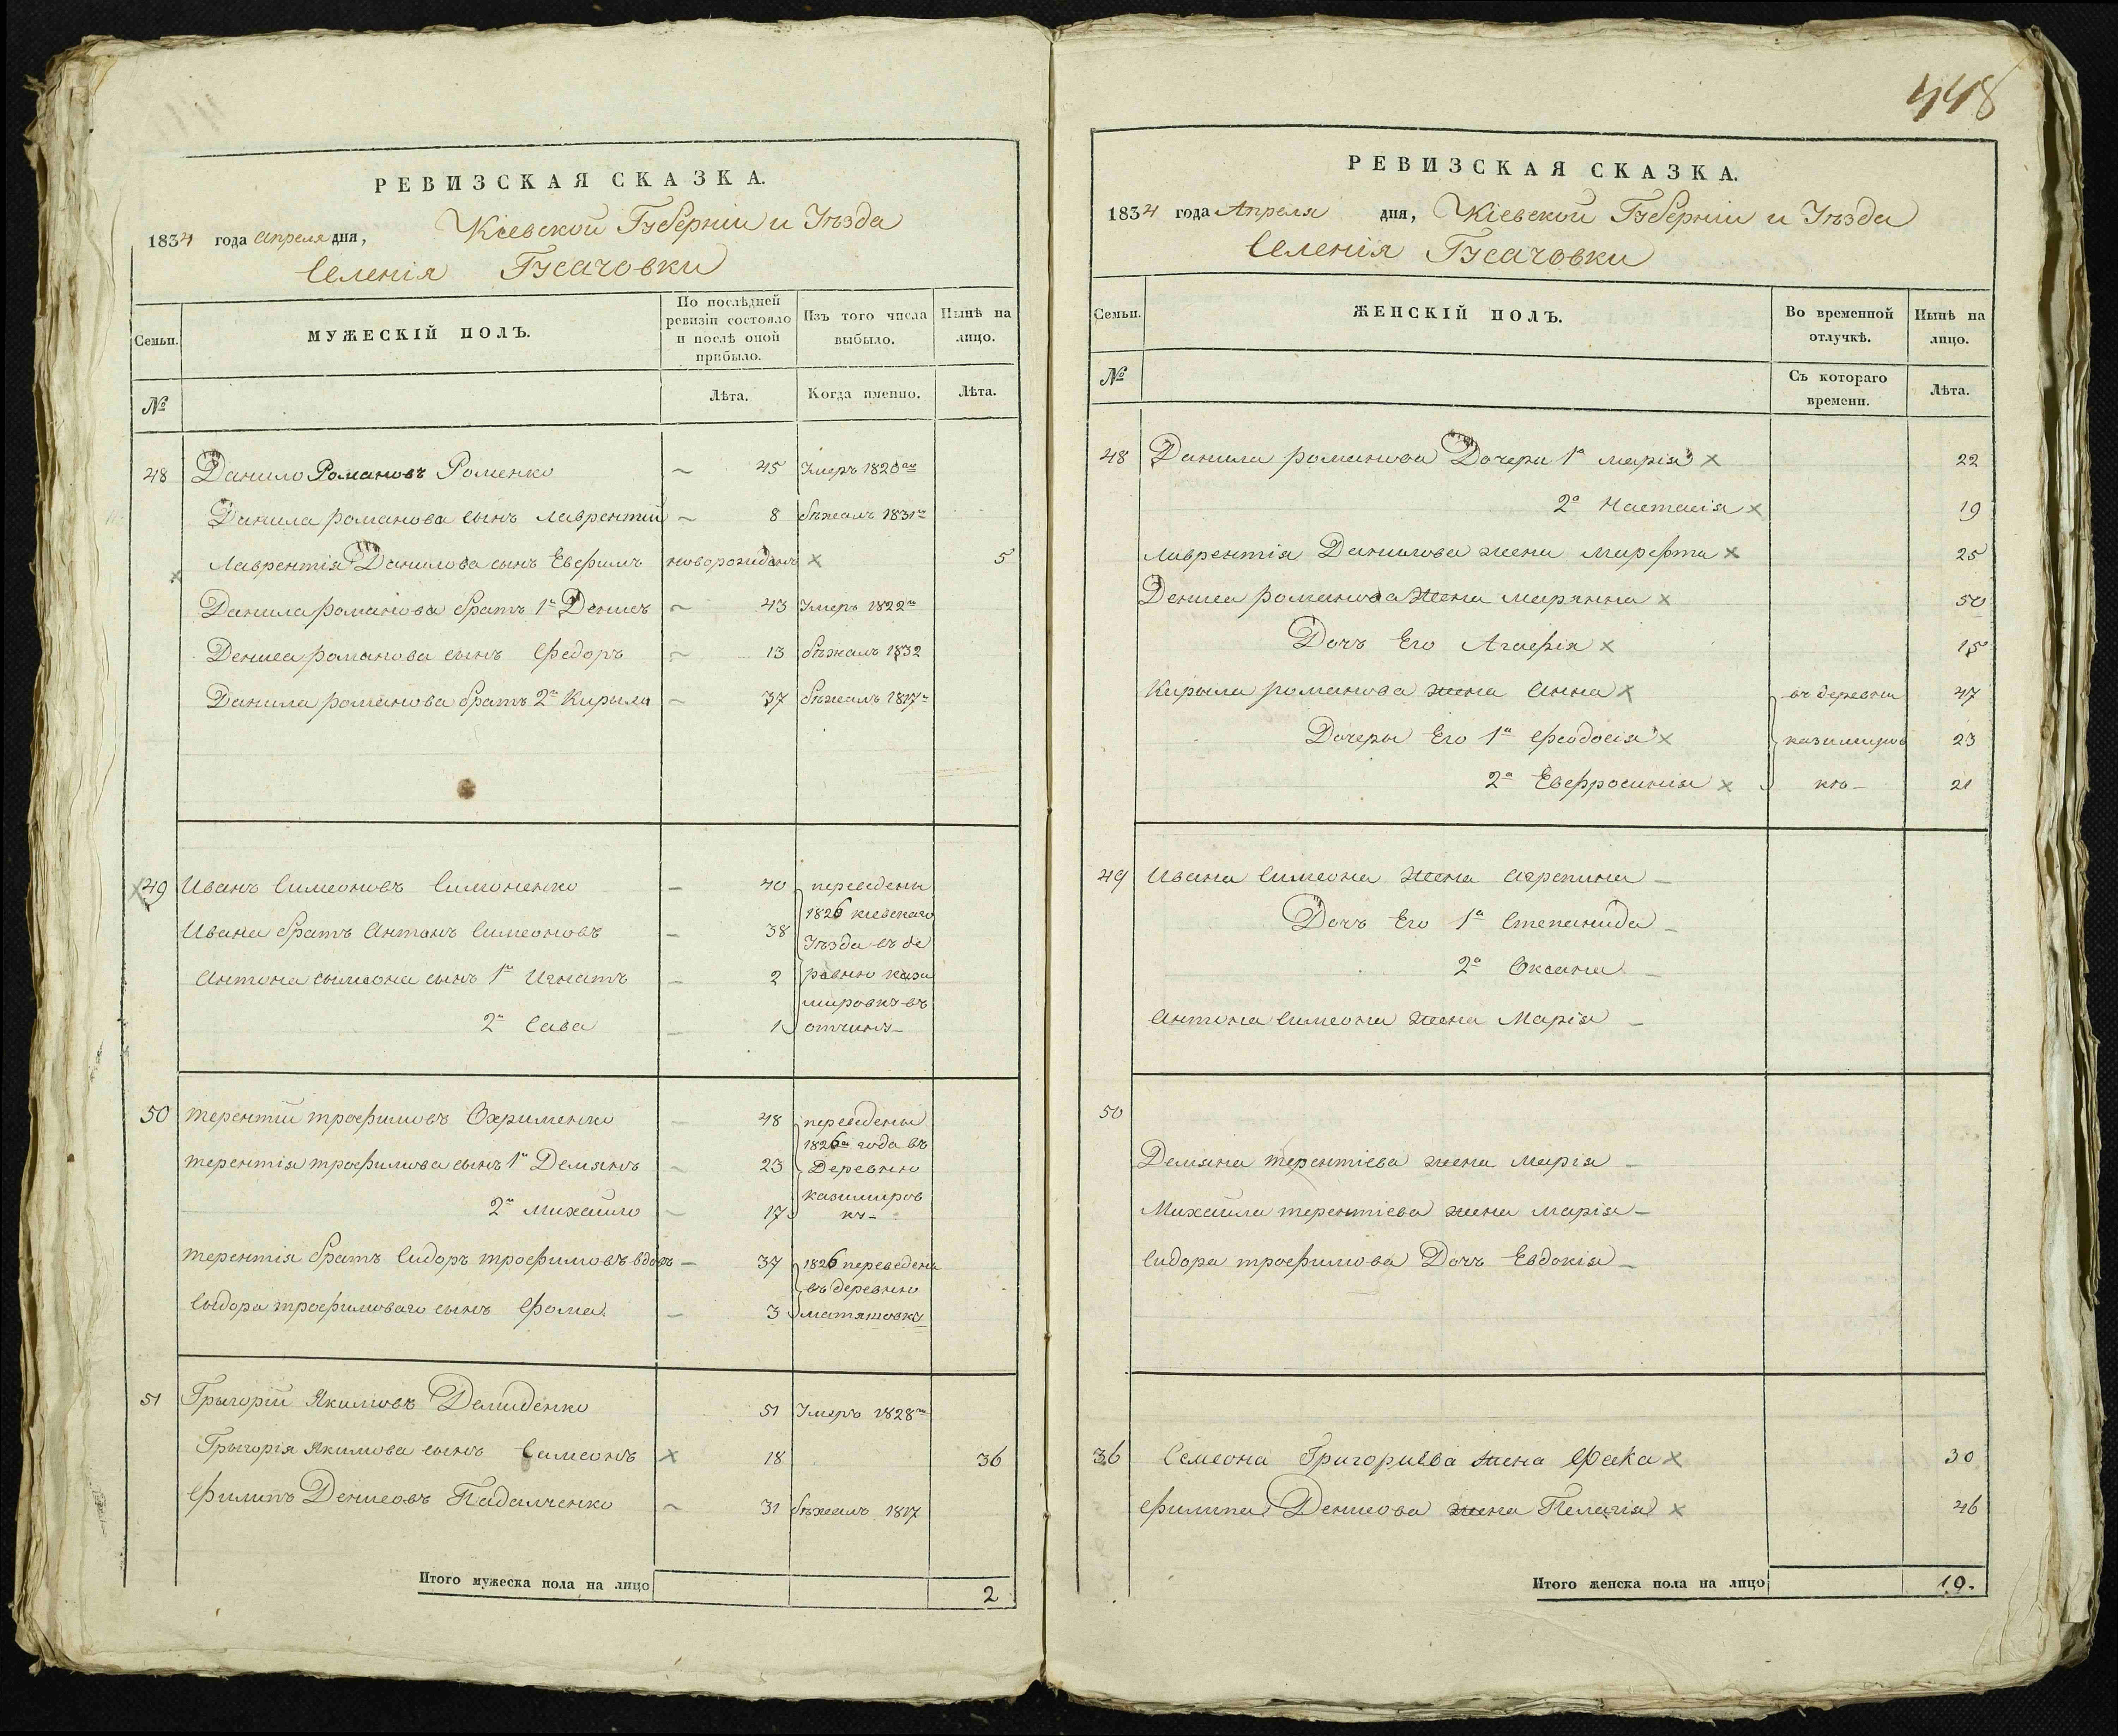 РЕВИЗСКАЯ СКАЗКА.
1834 года Апреля дня, Кіевской Губерніи и Уѣзда
Селенія Гусачовки
Семьи.
МУЖЕСКІЙ ПОЛЪ.
По послѣдней ревизіи состояло и послѣ оной прибыло.
Изъ того числа выбыло.
Нынѣ на лицо.
№
Лѣта.
Когда именно.
Лѣта.
48 Данило Романовъ Роменко ~ 45 Умеръ 1820го
Данила романова сынъ лаврентій ~ 8 бѣжалъ 1831го
Лаврентія Данилова сынъ Евфимъ новорожденъ × 5
×
Данила романова братъ 1й Денисъ ~ 43 Умеръ 1822го
Дениса романова сынъ Федоръ ~ 13 бѣжалъ 1832
Данила романова братъ 2й Кирыло ~ 37 бѣжалъ 1817го
×49 Иванъ Симеоновъ Симоненко – 40 переведены
1826 киевскаго
Ивана братъ Антонъ Симеоновъ – 38 Уѣзда въ де
Антона сымеона сынъ 1й Игнатъ – 2 ревню кази
мировку въ
2й Сава – 1 отчину –
50 терентій трофимовъ Охрименко – 48 переведены
1826го года въ
терентія трофимова сынъ 1й Демянъ ~ 23 Деревню
казимиров
2й михайло ~ 17 ку –
терентія братъ Сидоръ трофимовъ вдовъ – 37 1826 переведены
въ деревню
Сыдора трофимоваго сынъ Фома – 3 матяшовку
51 Грыгорій Якимовъ Демиденко 51 Умеръ 1828го
Грыгорія Якимова сынъ Симеонъ × 18 36
Филипъ Денисовъ Падалченко ~ 31 бѣжалъ 1817
Итого мужеска пола на лицо 2
448
РЕВИЗСКАЯ СКАЗКА.
1834 года Апреля дня, Кіевской Губерніи и Уѣзда
Селенія Гусачовки
Семьи.
ЖЕНСКІЙ ПОЛЪ.
Во временной отлучкѣ.
Нынѣ на лицо.
№
Съ котораго времени.
Лѣта.
48 Данила романова Дочери 1я марія × 22
2я Настасія × 19
лаврентія Данилова жена марфта × 25
Дениса романова жена марянна × 50
Дочъ Его Агафія × 15
Кирыла романова жена анна × въ деревни 47
Дочеры Его 1я Феодосія × казимиров 23
2я Евфросинія × кѣ – 21
49 Ивана Симеона жена агрепина –
Дочъ Его 1я Степанида –
2я Оксана –
Антона Симеона жена Марія –
50
Демяна терентіева жена марія –
Михайла терентіева жена марія –
Сидора трофимова Дочъ Евдокія –
36 Семеона Григориева жена Фека × 30
Филипа Денисова жена Пелагія × 46
Итого женска пола на лицо 10.